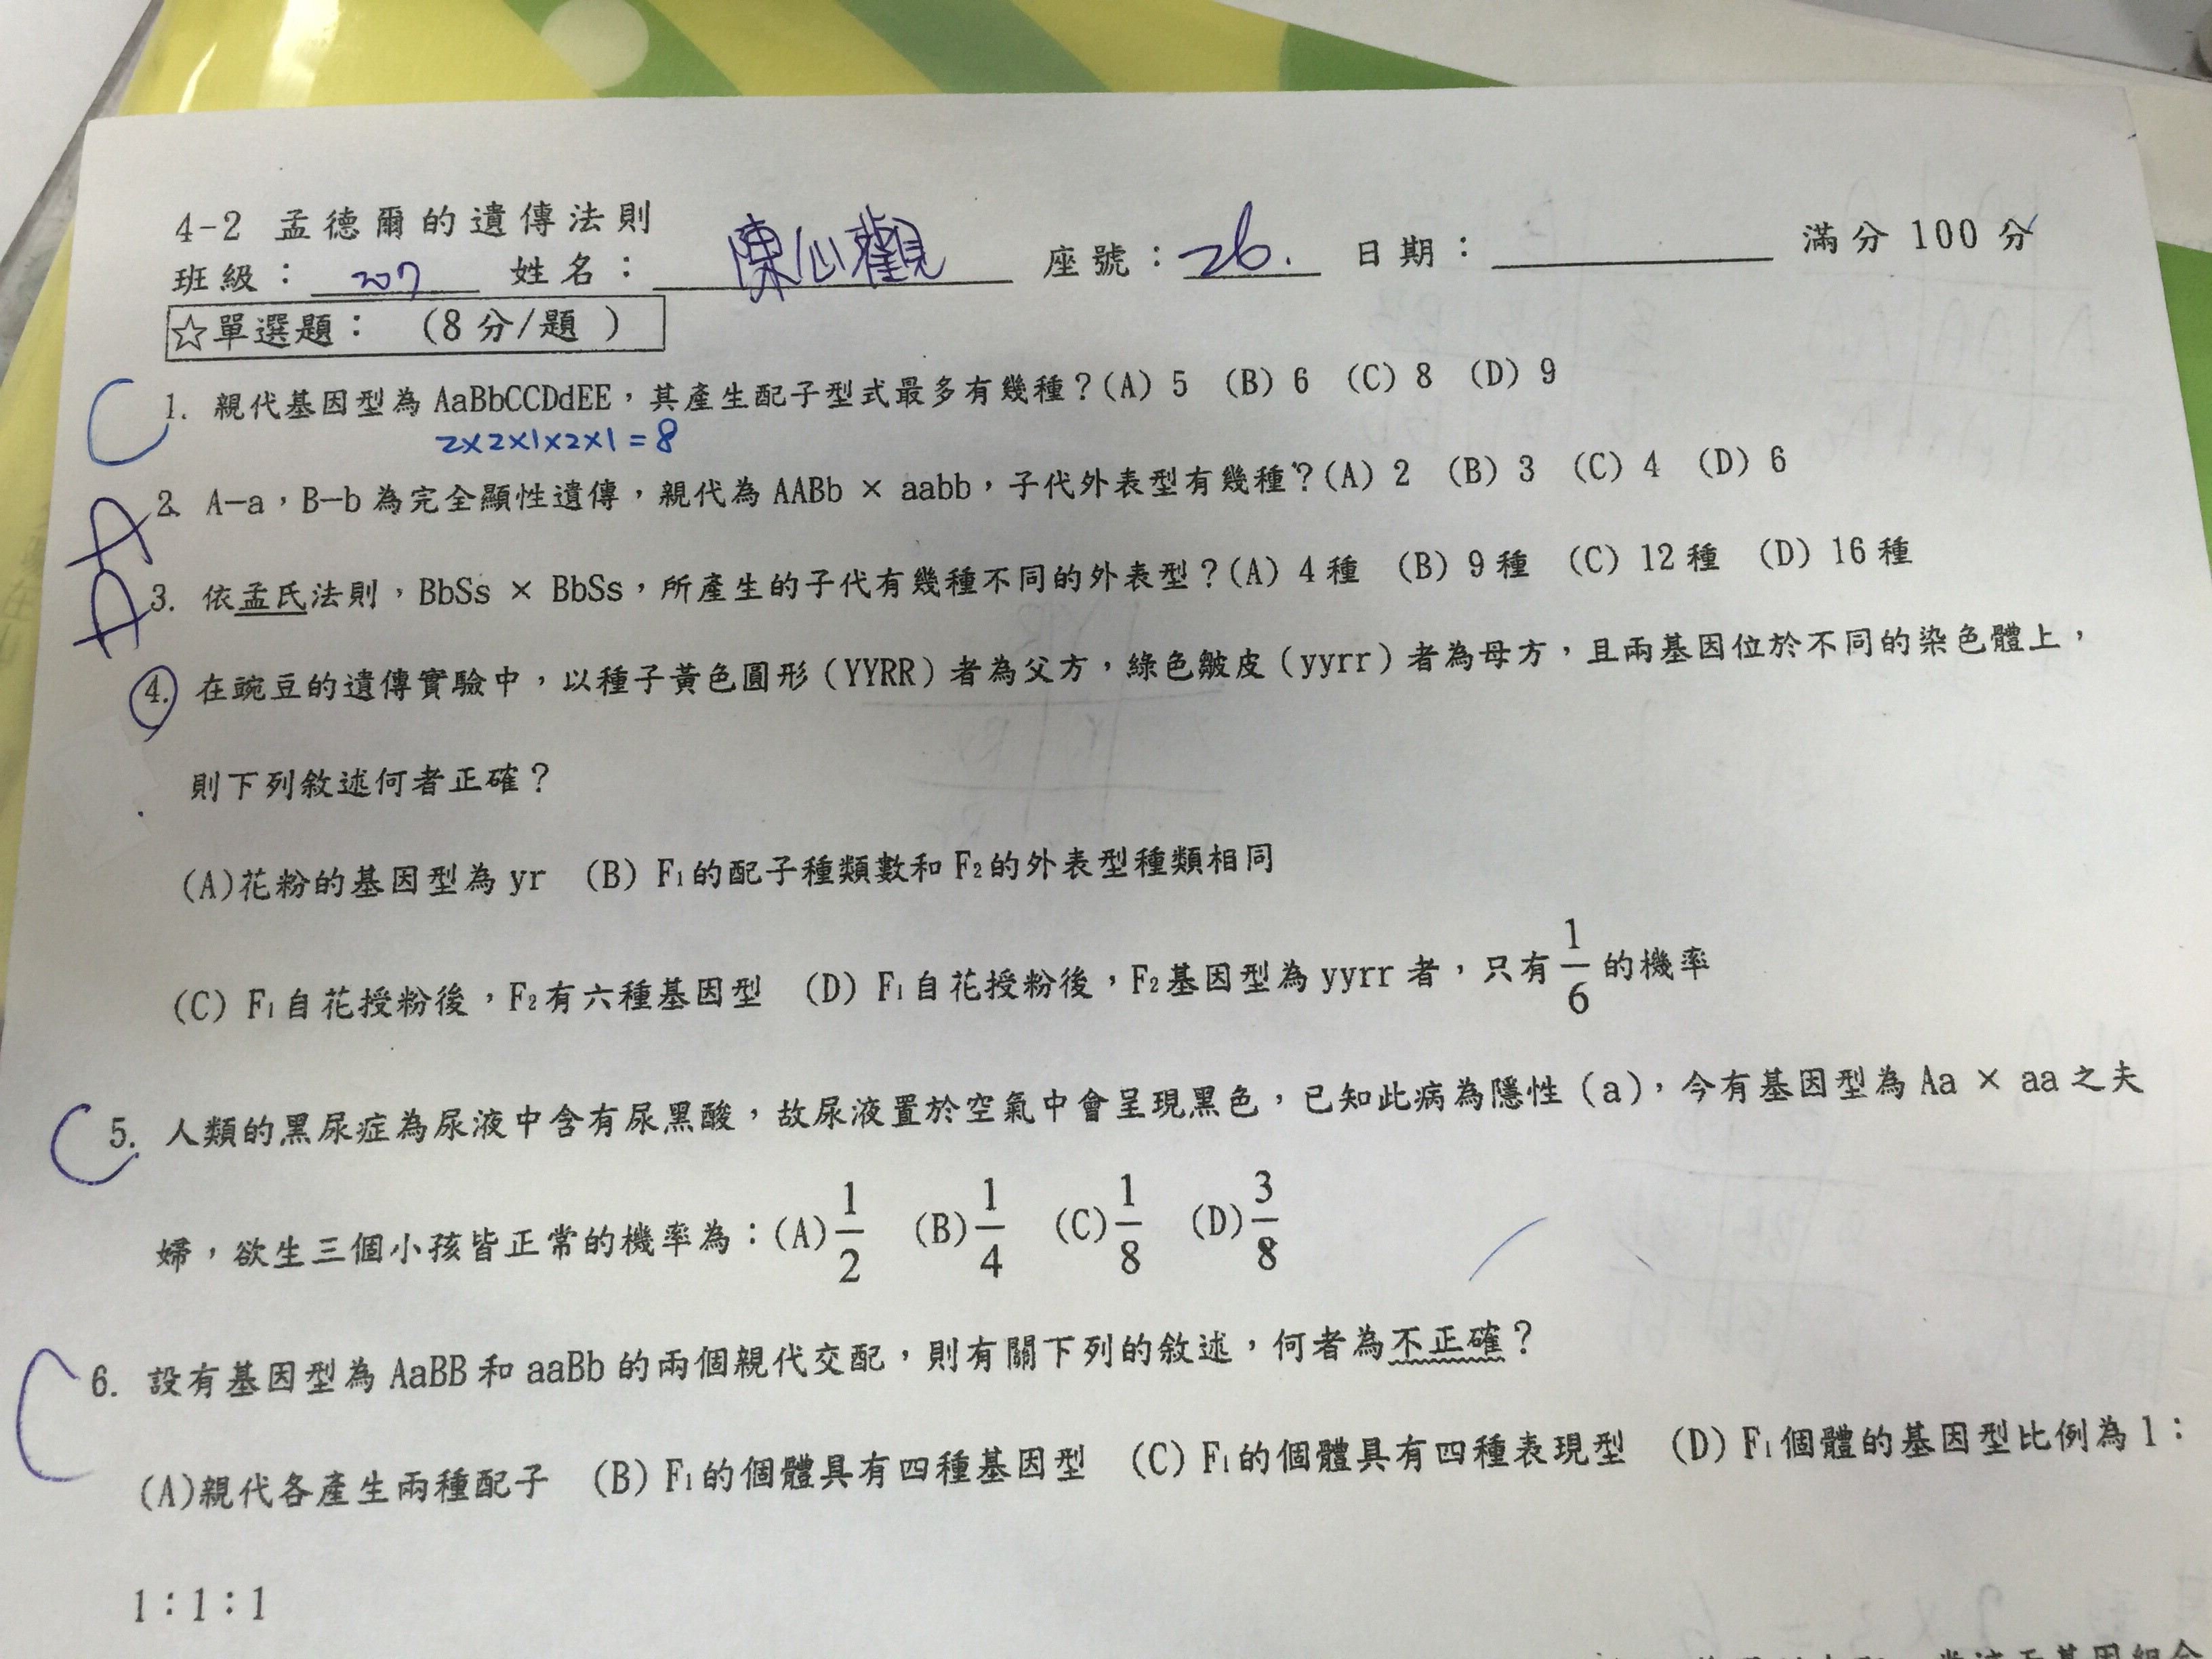 4-2 孟德爾的遺傳法則
班級：207 姓名：陳心觀 座號：26. 日期： 滿分 100 分
☆單選題：（8 分/題 ）
C 1. 親代基因型為 AaBbCCDdEE，其產生配子型式最多有幾種？(A) 5 (B) 6 (C) 8 (D) 9
2×2×1×2×1=8
A 2. A—a，B—b 為完全顯性遺傳，親代為 AABb × aabb，子代外表型有幾種？(A) 2 (B) 3 (C) 4 (D) 6
A 3. 依孟氏法則，BbSs × BbSs，所產生的子代有幾種不同的外表型？(A) 4 種 (B) 9 種 (C) 12 種 (D) 16 種
4. 在豌豆的遺傳實驗中，以種子黃色圓形（YYRR）者為父方，綠色皺皮（yyrr）者為母方，且兩基因位於不同的染色體上，
則下列敘述何者正確？
(A)花粉的基因型為 yr (B) F₁的配子種類數和 F₂的外表型種類相同
(C) F₁自花授粉後，F₂有六種基因型 (D) F₁自花授粉後，F₂基因型為 yyrr 者，只有 1/6 的機率
C 5. 人類的黑尿症為尿液中含有尿黑酸，故尿液置於空氣中會呈現黑色，已知此病為隱性（a），今有基因型為 Aa × aa 之夫
婦，欲生三個小孩皆正常的機率為：(A) 1/2 (B) 1/4 (C) 1/8 (D) 3/8
C 6. 設有基因型為 AaBB 和 aaBb 的兩個親代交配，則有關下列的敘述，何者為不正確？
(A)親代各產生兩種配子 (B) F₁的個體具有四種基因型 (C) F₁的個體具有四種表現型 (D) F₁個體的基因型比例為 1：
1：1：1